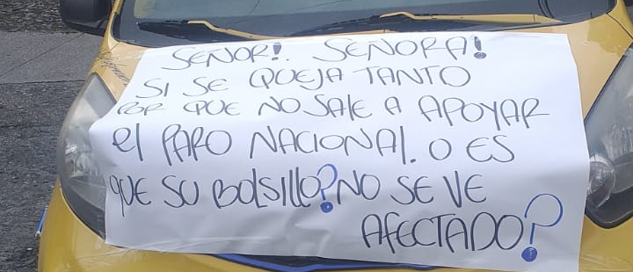 SEÑOR! SEÑORA!
SI SE QUEJA TANTO
POR QUE NO SALE A APOYAR
El PARO NACIONAl. O ES
QUE SU BOlSIllO? NO SE VE
AFECTADO?